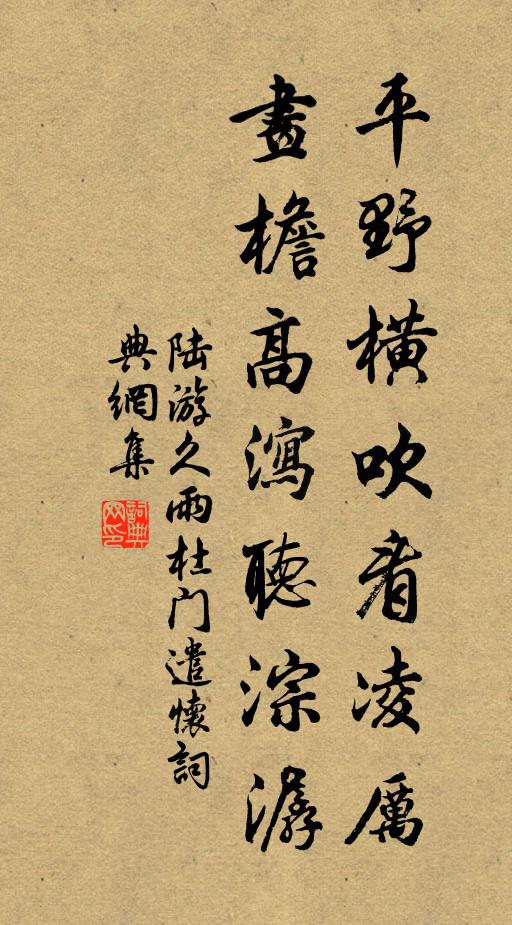 平野橫吹看凌厲
畫檐高瀉聽淙潺
陸游久雨杜门遣懷詞
典網集
詞典
网印